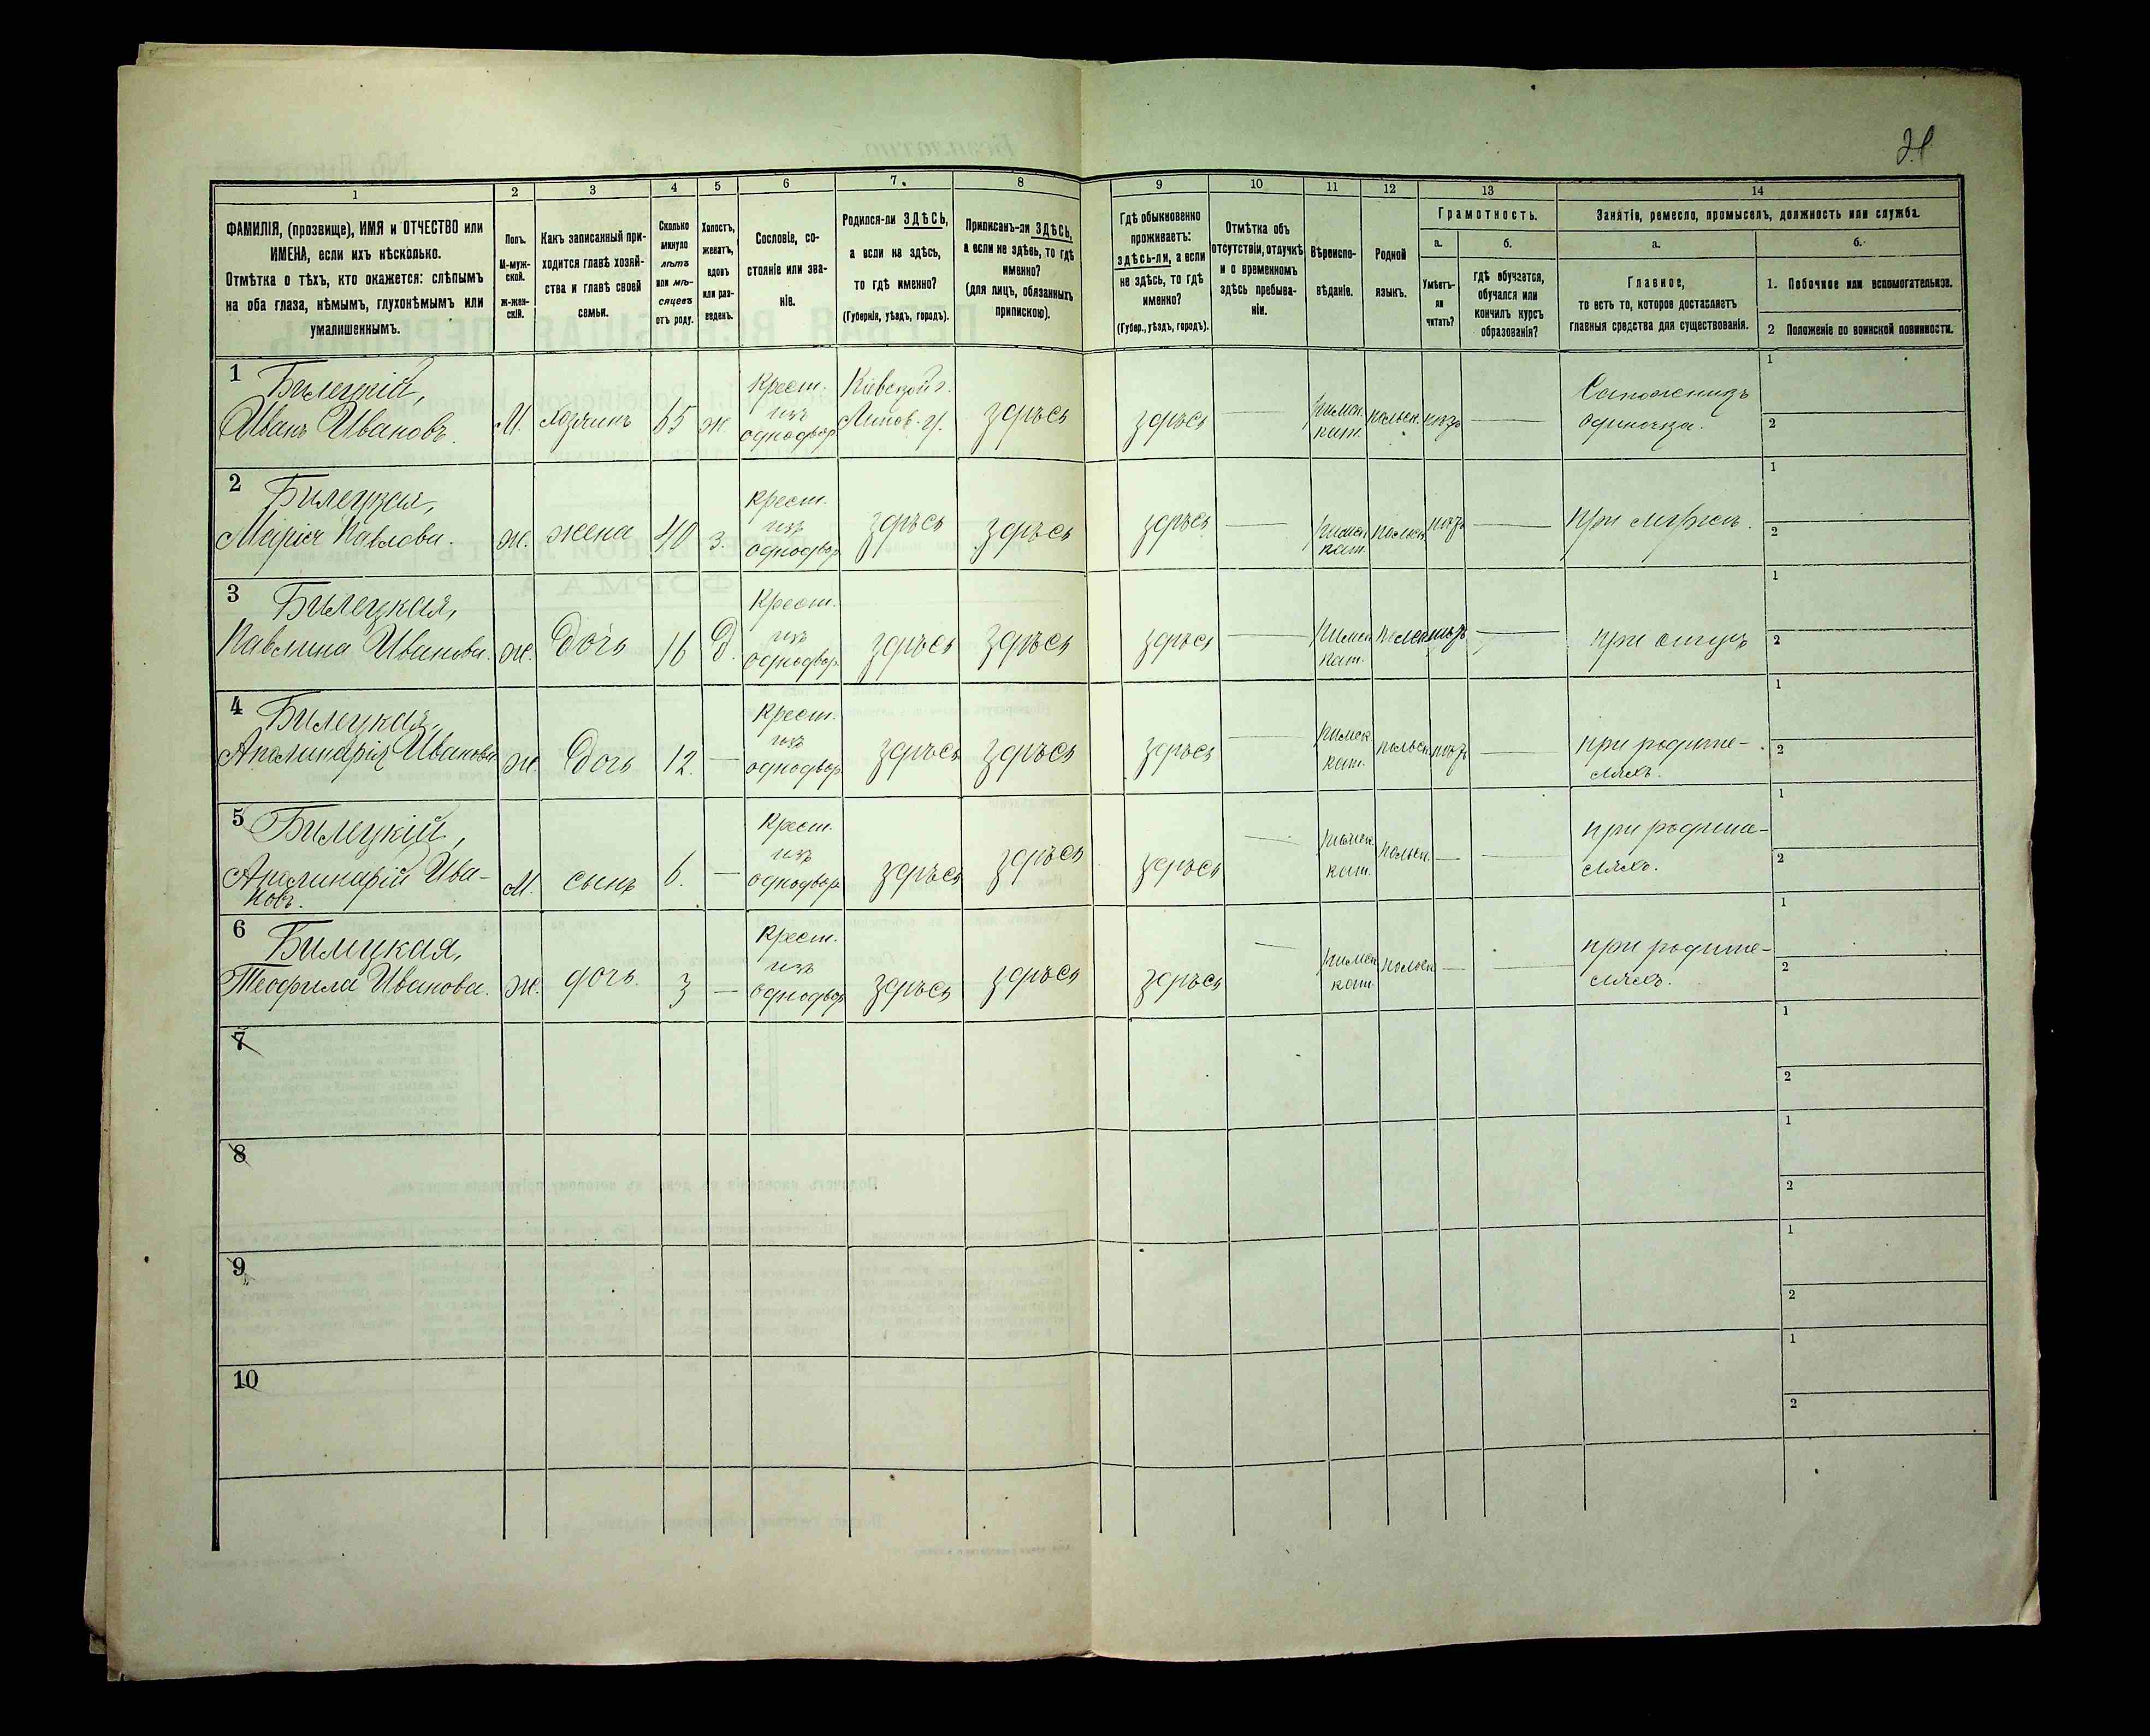 21
1 2 3 4 5 6 7 8 9 10 11 12 13 14
ФАМИЛІЯ, (прозвище), ИМЯ и ОТЧЕСТВО или
ИМЕНА, если ихъ нѣсколько.
Отмѣтка о тѣхъ, кто окажется: слѣпымъ
на оба глаза, нѣмымъ, глухонѣмымъ или
умалишеннымъ.
Полъ.
М-муж-
ской.
Ж-жен-
скій.
Какъ записанный при-
ходится главѣ хозяй-
ства и главѣ своей
семьи.
Сколько
минуло
лѣтъ
или мѣ-
сяцевъ
отъ роду.
Холостъ,
женатъ,
вдовъ
или раз-
веденъ.
Сословіе, со-
стояніе или зва-
ніе.
Родился-ли ЗДѢСЬ,
а если не здѣсь,
то гдѣ именно?
(Губернія, уѣздъ, городъ).
Приписанъ-ли ЗДѢСЬ,
а если не здѣсь, то гдѣ
именно?
(для лицъ, обязанныхъ
припискою).
Гдѣ обыкновенно
проживаетъ:
здѣсь-ли, а если
не здѣсь, то гдѣ
именно?
(Губер., уѣздъ, городъ).
Отмѣтка объ
отсутствіи, отлучкѣ
и о временномъ
здѣсь пребыва-
ніи.
Вѣроиспо-
вѣданіе.
Родной
языкъ.
Грамотность.
а.
Умѣетъ-
ли
читать?
б.
гдѣ обучается,
обучался или
кончилъ курсъ
образованія?
Занятія, ремесло, промыселъ, должность или служба.
а.
Главное,
то есть то, которое доставляетъ
главныя средства для существованія.
б.
1. Побочное или вспомогательное.
2 Положеніе по воинской повинности.
1 Билецкій,
Иванъ Ивановъ.
М.
65
ж.
Крест.
изъ
однодвор.
Кіевской г.
Липов. у.
здѣсь
здѣсь
—
римск.
кат.
польск.
нѣтъ
—
Сапожникъ
одиночка.
1
2
2 Билецкая,
Марія Павлова.
ж.
жена
40
з.
крест.
изъ
однодвор.
здѣсь
здѣсь
здѣсь
—
римск.
кат.
польск.
нѣтъ
—
при мужѣ.
1
2
3 Билецкая,
Павлина Иванова.
ж.
дочь
16
д.
Крест.
изъ
однодвор.
здѣсь
здѣсь
здѣсь
—
римск.
кат.
польск.
нѣтъ
—
при отцѣ
1
2
4 Билецкая,
Аполинарія Иванова
ж.
дочь
12.
—
Крест.
изъ
однодвор.
здѣсь
здѣсь
здѣсь
—
римск.
кат.
польск.
нѣтъ
—
при родите-
ляхъ.
1
2
5 Билецкій,
Аполинарій Ива-
новъ.
М.
сынъ
6.
—
Крест.
изъ
однодвор.
здѣсь
здѣсь
здѣсь
—
римск.
кат.
польск.
—
—
при родите-
ляхъ.
1
2
6 Билецкая,
Теофила Иванова.
ж.
дочь.
3
—
Крест.
изъ
однодвор.
здѣсь
здѣсь
здѣсь
—
римск.
кат.
польск.
—
—
при родите-
ляхъ.
1
2
7
1
2
8
1
2
9
1
2
10
1
2